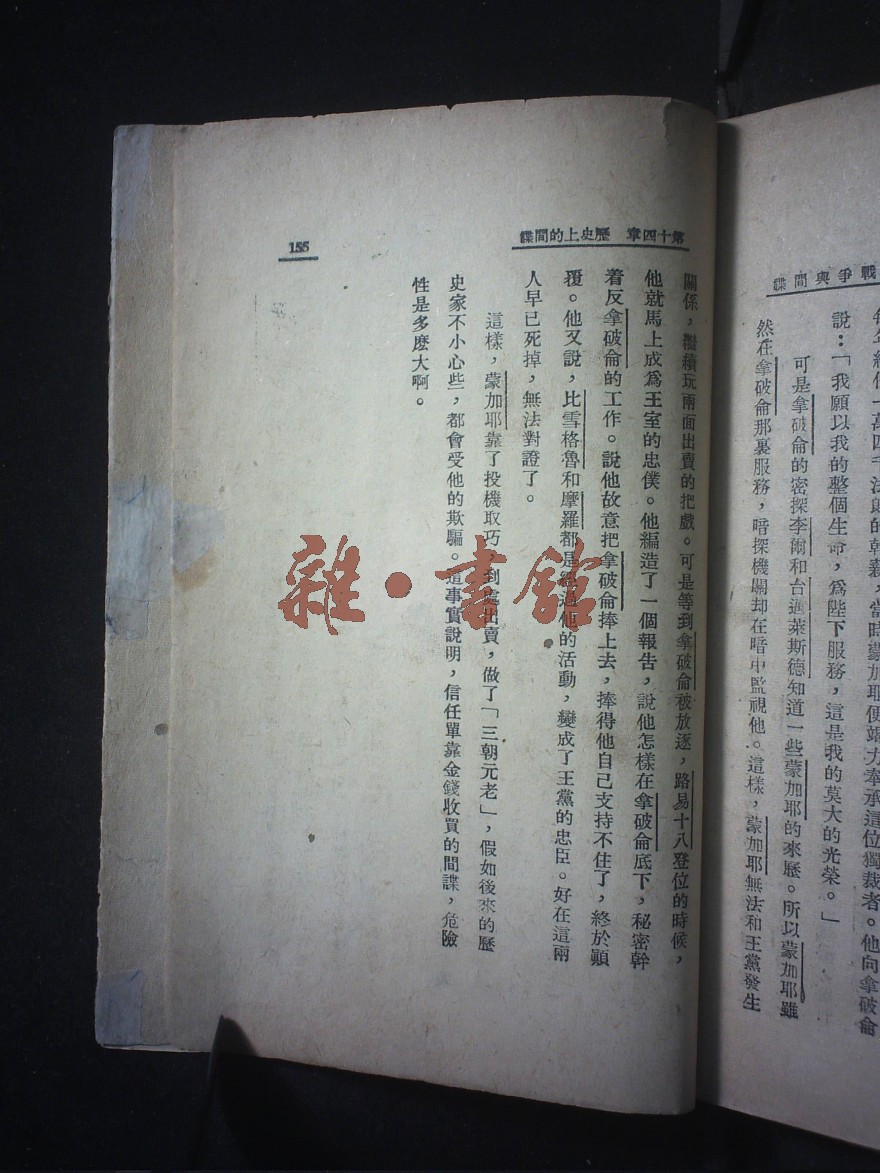 戰爭與間諜
說：「我願以我的整個生命，為陛下服務，這是我的莫大的光榮。」
可是拿破侖的密探李爾和台邁萊斯德知道一些蒙加耶的來歷。所以蒙加耶雖
然在拿破侖那裏服務，暗探機關却在暗中監視他。這樣，蒙加耶無法和王黨發生
第十四章 歷史上的間諜
155
關係，繼續玩兩面出賣的把戲。可是等到拿破侖被放逐，路易十八登位的時候，
他就馬上成爲王室的忠僕。他編造了一個報告，說他怎樣在拿破侖底下，秘密幹
着反拿破侖的工作。說他故意把拿破侖捧上去，捧得他自己支持不住了，終於顚
覆。他又說，比雪格魯和摩羅都是他的活動，變成了王黨的忠臣。好在這兩
人早已死掉，無法對證了。
這樣，蒙加耶靠了投機取巧，到處出賣，做了「三朝元老」，假如後來的歷
史家不小心些，都會受他的欺騙。這事實說明，信任單靠金錢收買的間諜，危險
性是多麽大啊。
雜·書館